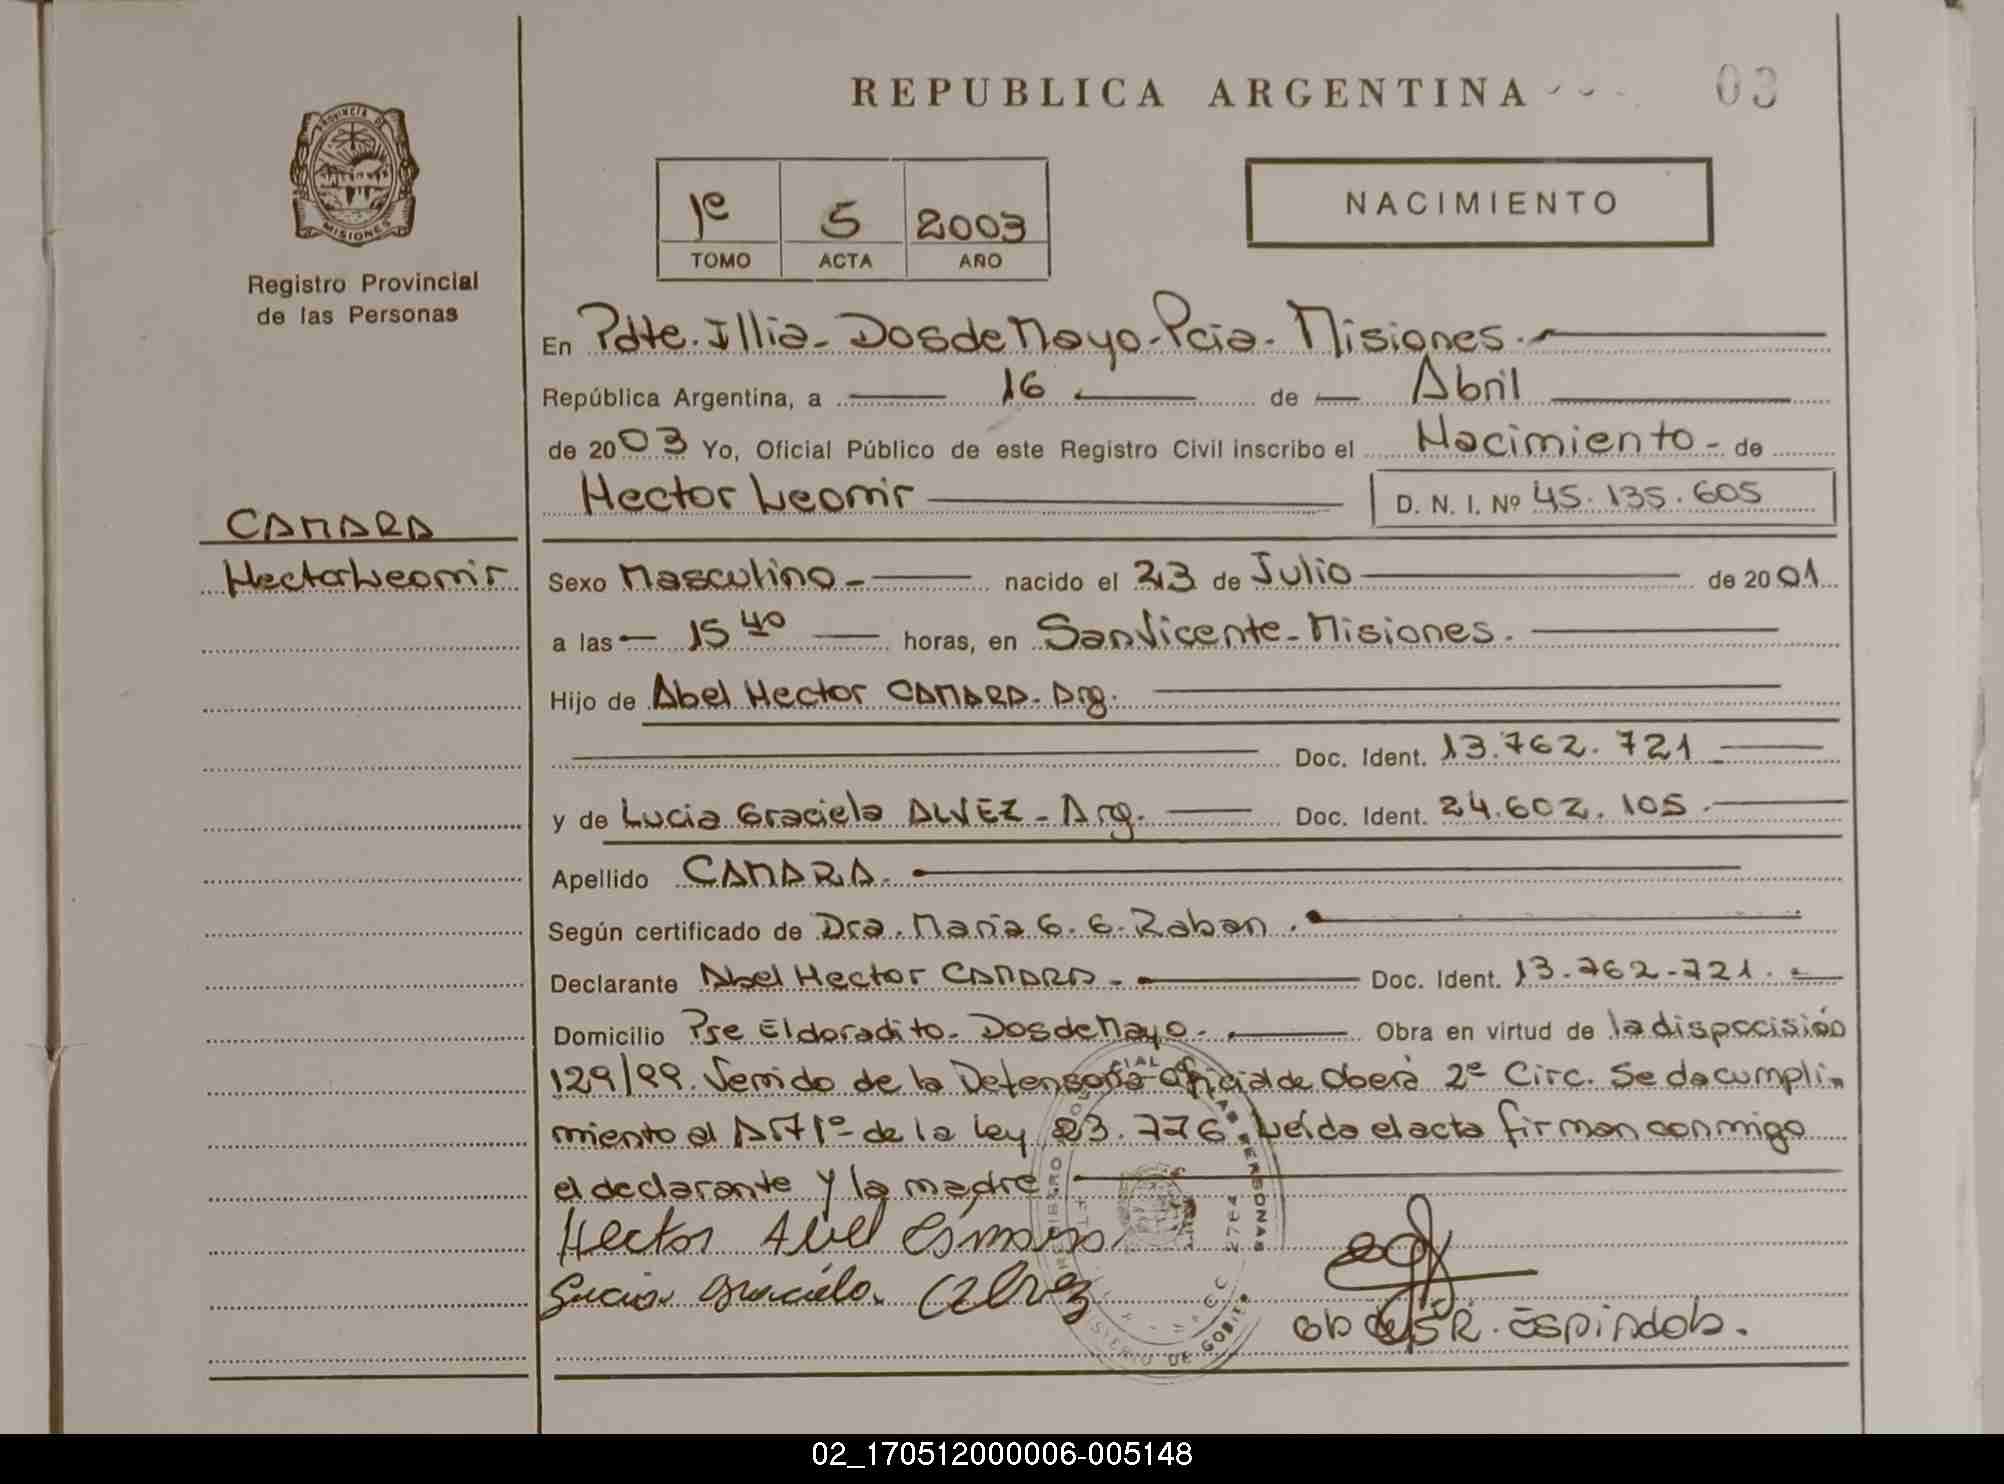 REPUBLICA ARGENTINA
03
PROVINCIA DE
MISIONES
Registro Provincial
de las Personas
1º 5 2003
TOMO ACTA AÑO
NACIMIENTO
En Pdte. Illia - Dos de Mayo - Pcia. Misiones.
República Argentina, a 16 de Abril
de 2003 Yo, Oficial Público de este Registro Civil inscribo el Nacimiento - de
Hector Leomir D. N. I. Nº 45.135.605
CAMARA
Hector Leomir
Sexo Masculino - nacido el 23 de Julio de 2001
a las 15 40 horas, en San Vicente - Misiones.
Hijo de Abel Hector CAMARA - Arg.
Doc. Ident. 13.762.721
y de Lucia Graciela ALVEZ - Arg. Doc. Ident. 24.602.105
Apellido CAMARA.
Según certificado de Dra. Maria G. G. Raban.
Declarante Abel Hector CAMARA - Doc. Ident. 13.762.721.
Domicilio Pje Eldoradito - Dos de Mayo. Obra en virtud de la dispocisión
129/99. Venido de la Defensoria Oficial de Oberá 2º Circ. Se da cumpli-
miento al Art 1º de la Ley 23.776. Leída el acta firman conmigo
el declarante y la madre
Hector Abel Camara
Lucia Graciela Alvez
ESPINDOLA.
02_170512000006-005148